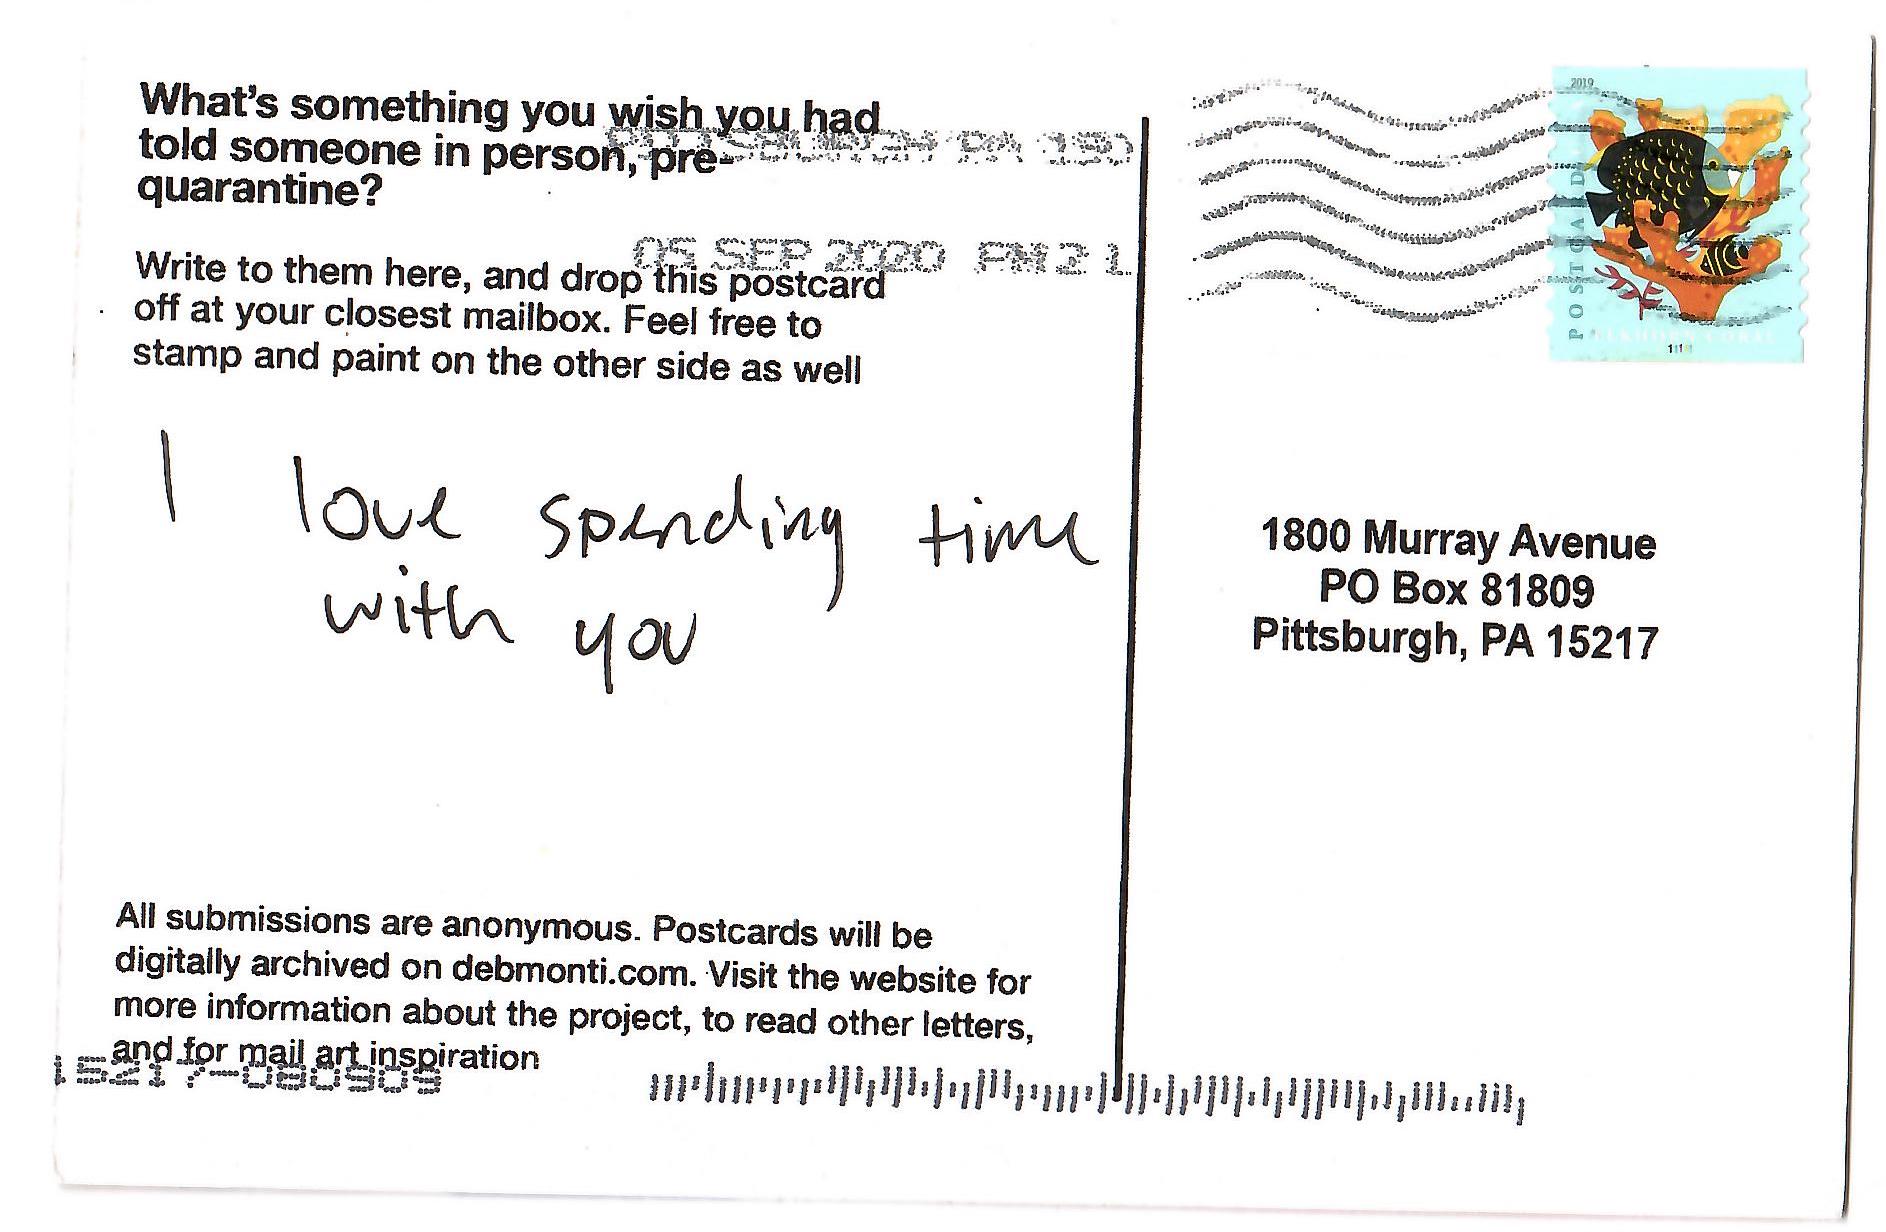 What's something you wish you had
told someone in person, pre-
quarantine?
PITTSBURGH PA 150
05 SEP 2020 PM 2 L
Write to them here, and drop this postcard
off at your closest mailbox. Feel free to
stamp and paint on the other side as well
I love spending time
with you
All submissions are anonymous. Postcards will be
digitally archived on debmonti.com. Visit the website for
more information about the project, to read other letters,
and for mail art inspiration
15217-080909
2019
POSTCARD
ELKHORN CORAL
1111
1800 Murray Avenue
PO Box 81809
Pittsburgh, PA 15217